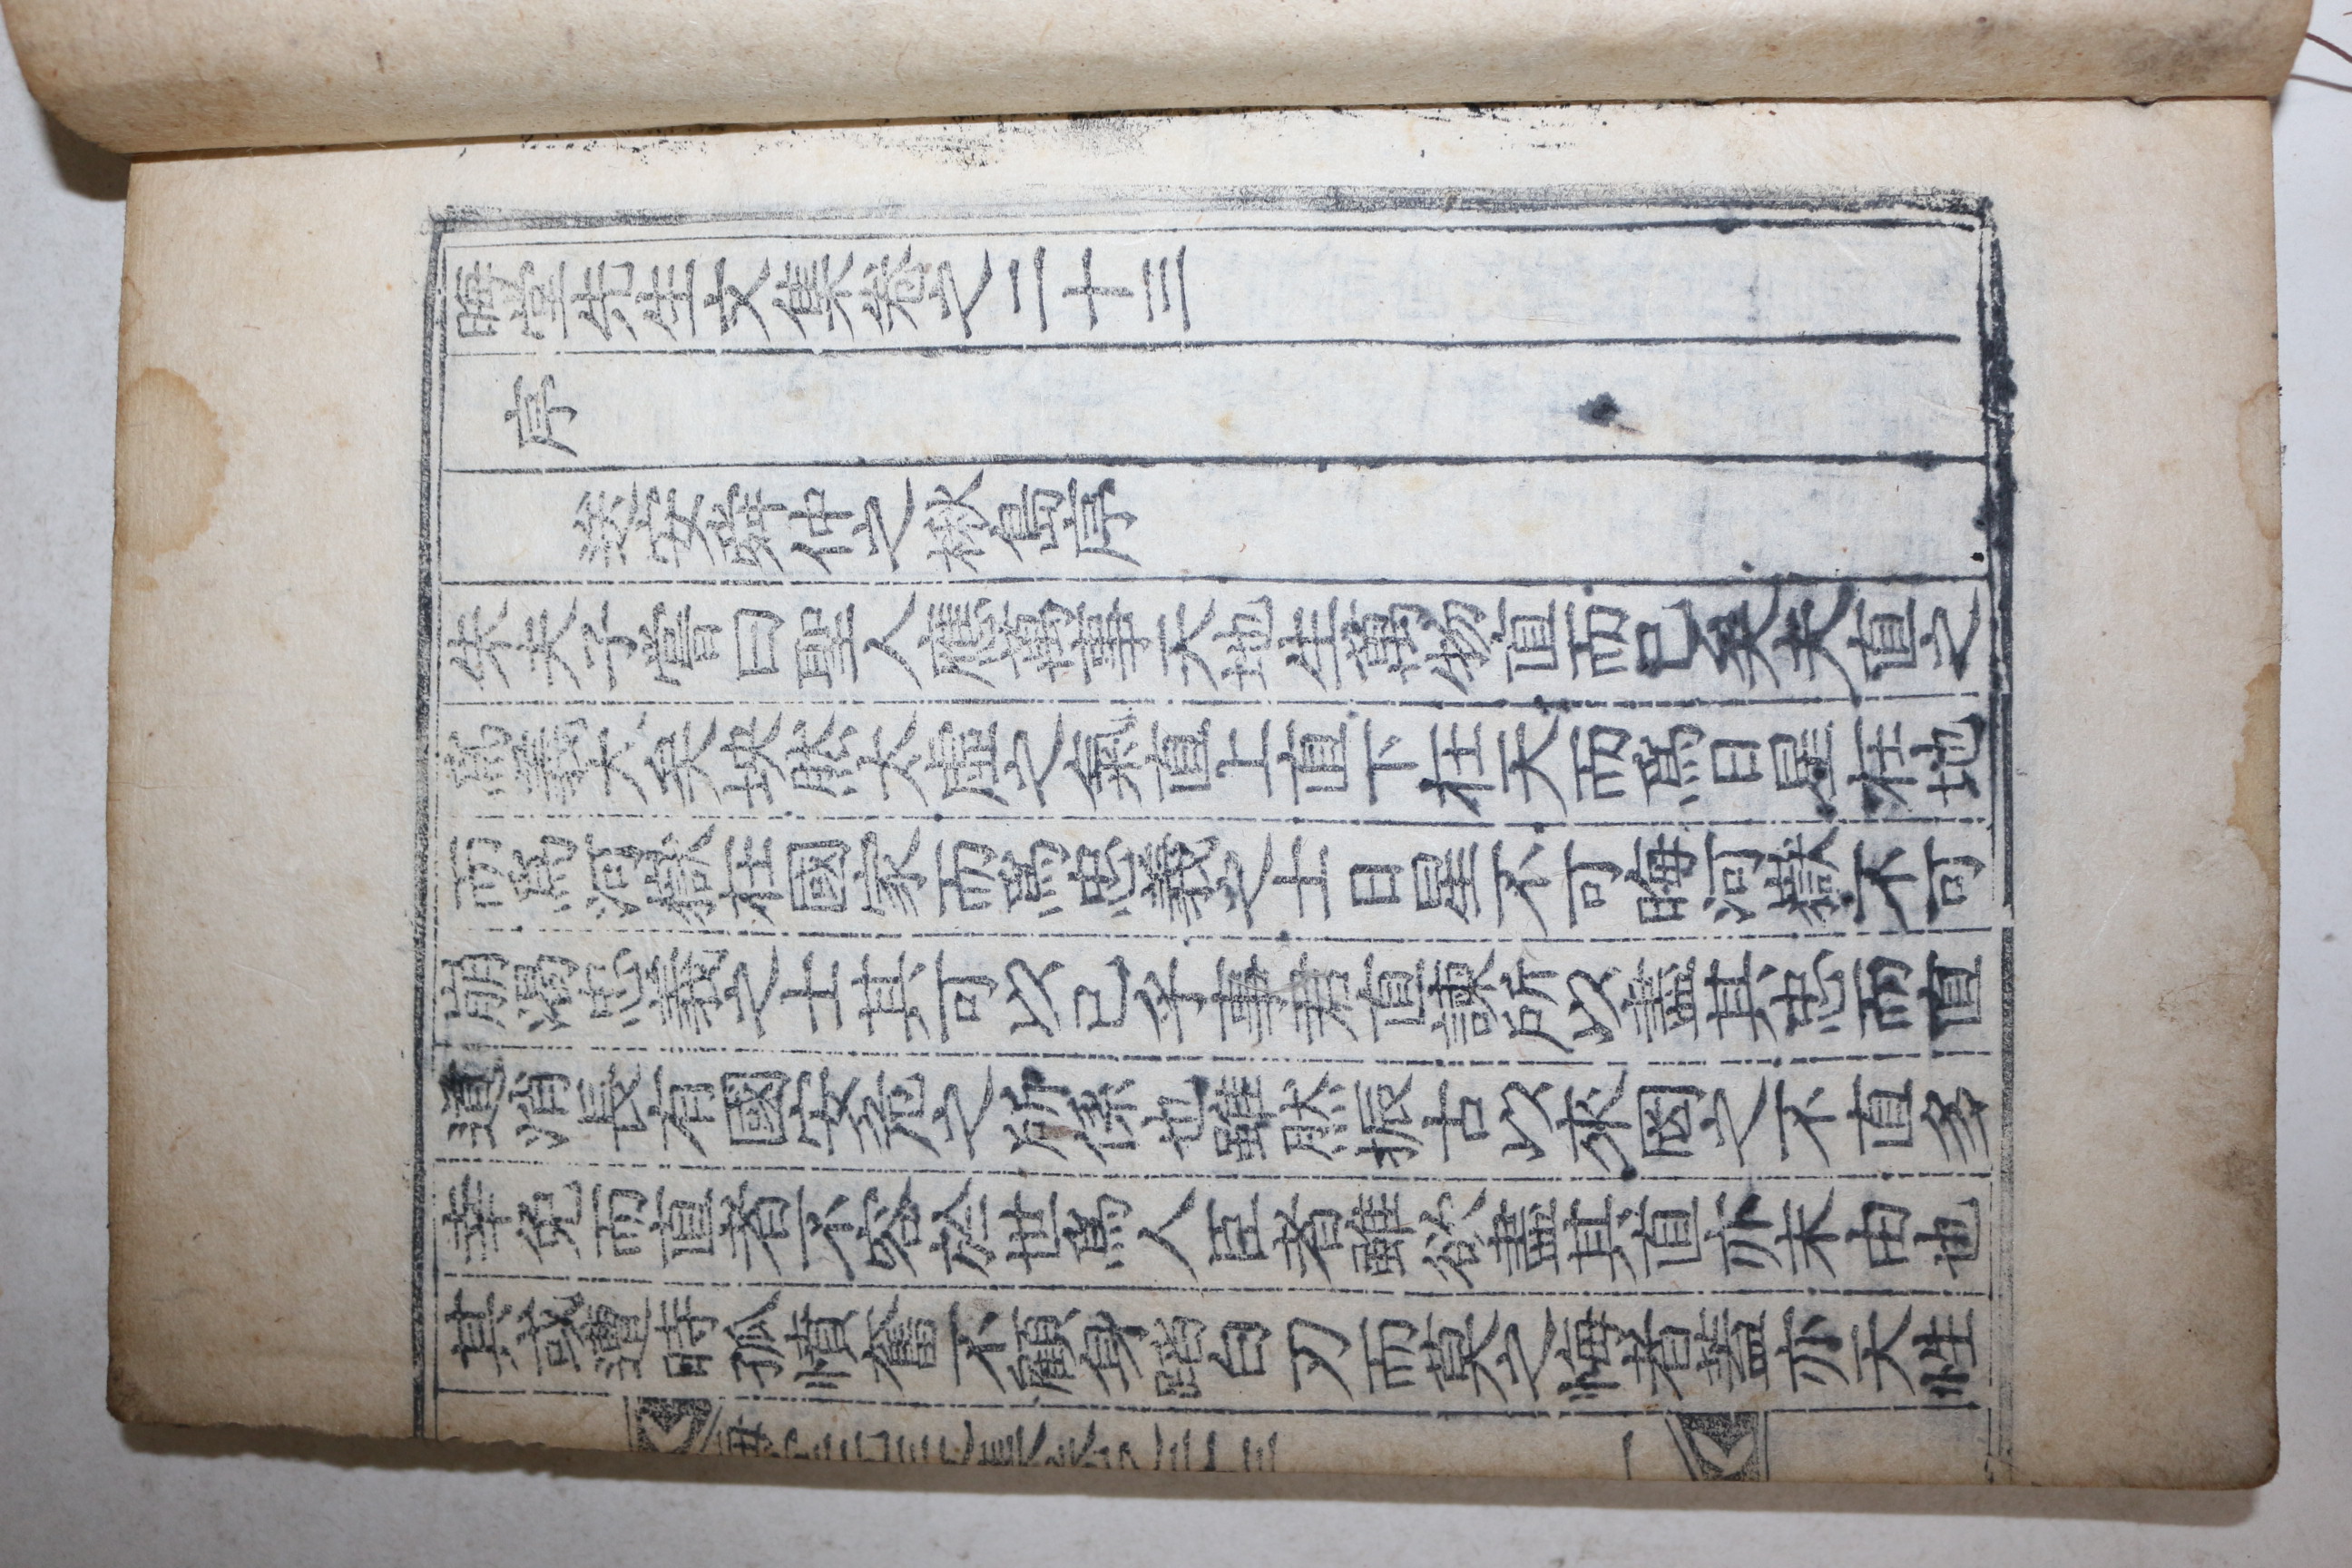 晦堂先生文集卷之二十三
序
送安舜仲之楸島序
朱夫子嘗曰聖人應萬事天地生萬物直而已矣夫直之
爲義大矣坱然太虛之氣直上直下在天而爲日星在地
而爲河嶽在國家而爲忠義之士日星不可晦河嶽不可
崩渴忠義之士其可以已乎事君直諫所以盡其忠而直
道消長有國安危之所係也雖然振古以來罔之不直多
幸免而直者不容於世爲人臣者雖欲盡其直亦末由也
其或遭時孤憤奮不顧身蹈白刃而莫之悔者蓋亦天性